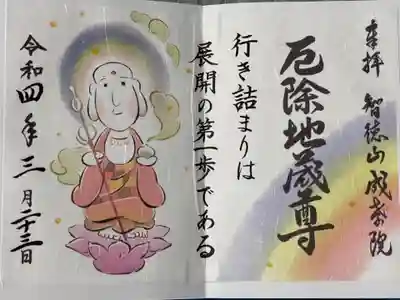 奉拝 智徳山 成就院
厄除地蔵尊
行き詰まりは
展開の第一歩である
令和四年三月二十三日